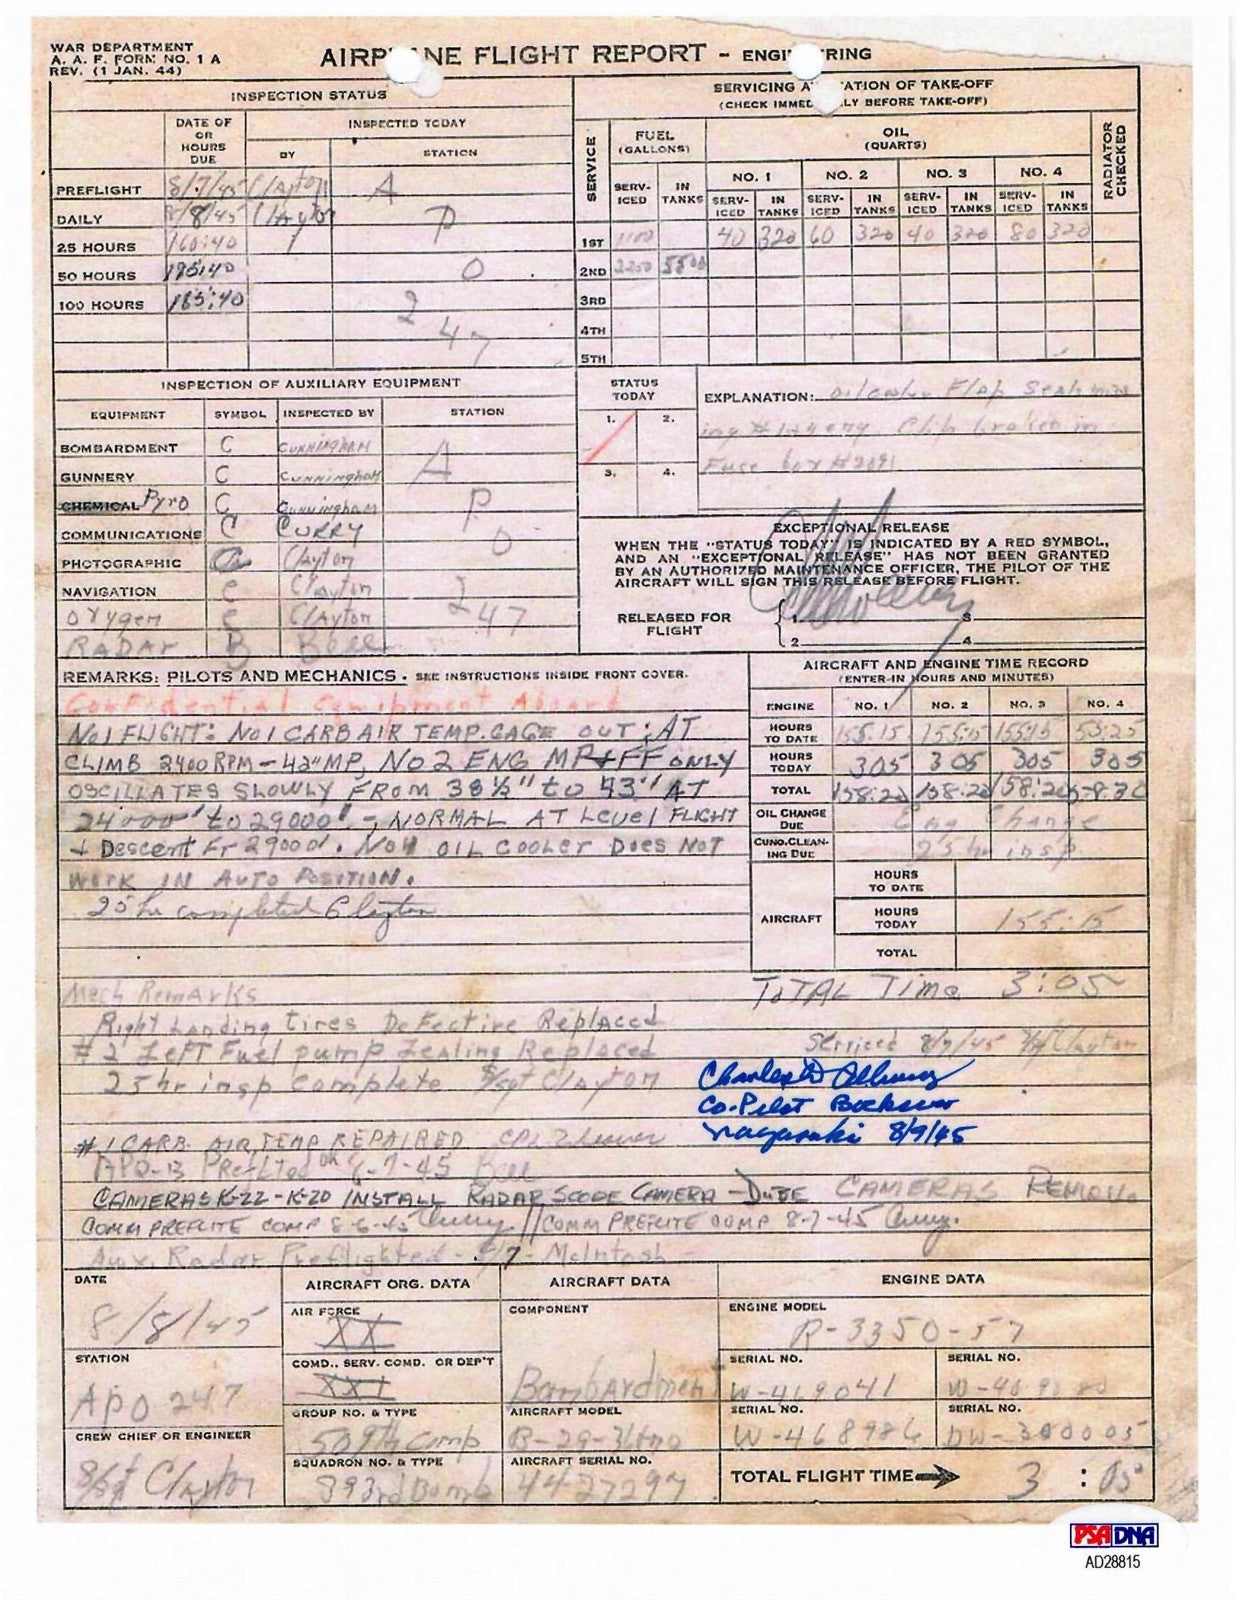 WAR DEPARTMENT
A. A. F. FORM NO. 1 A
REV. (1 JAN. 44)
AIRP NE FLIGHT REPORT - ENGI RING
INSPECTION STATUS
DATE OF OR HOURS DUE
INSPECTED TODAY
BY STATION
PREFLIGHT 8/7/45 Clayton A
DAILY 8/8/45 Clayton P
25 HOURS 160:40
50 HOURS 185:40 O
100 HOURS 185:40 2
47
SERVICING A ATION OF TAKE-OFF
(CHECK IMMED LY BEFORE TAKE-OFF)
SERVICE
FUEL (GALLONS)
OIL (QUARTS)
RADIATOR CHECKED
NO. 1 NO. 2 NO. 3 NO. 4
SERV-ICED IN TANKS SERV-ICED IN TANKS SERV-ICED IN TANKS SERV-ICED IN TANKS SERV-ICED IN TANKS
1ST 1100 40 320 60 320 40 320 80 320
2ND 2200 5500
3RD
4TH
5TH
INSPECTION OF AUXILIARY EQUIPMENT
EQUIPMENT SYMBOL INSPECTED BY STATION
BOMBARDMENT C CUNNINGHAM
GUNNERY C CUNNINGHAM A
CHEMICAL Pyro C Cunningham P
COMMUNICATIONS C CURRY
PHOTOGRAPHIC Clayton O
NAVIGATION C Clayton 2
Oxygen C Clayton 47
RADAR B Bell
STATUS TODAY
1. 2.
3. 4.
EXPLANATION: Oil cooler Flap Seal miss
ing # 1 2 4 eng Clip broken in
Fuse box # 2091
EXCEPTIONAL RELEASE
WHEN THE "STATUS TODAY" IS INDICATED BY A RED SYMBOL,
AND AN "EXCEPTIONAL RELEASE" HAS NOT BEEN GRANTED
BY AN AUTHORIZED MAINTENANCE OFFICER, THE PILOT OF THE
AIRCRAFT WILL SIGN THIS RELEASE BEFORE FLIGHT.
RELEASED FOR FLIGHT
1. 3.
2 4
REMARKS: PILOTS AND MECHANICS. SEE INSTRUCTIONS INSIDE FRONT COVER.
Confidential Equipment Aboard
NO1 FLIGHT: NO1 CARB AIR TEMP. GAGE OUT; AT
CLIMB 2400 RPM - 42"MP, NO 2 ENG MP + FF ONLY
OSCILLATES SLOWLY FROM 38½" to 43" AT
24000' to 29000'. - NORMAL AT Level FLIGHT
+ Descent Fr 29000'. NO4 OIL COOLER DOES NOT
WORK IN AUTO POSITION.
25 hr completed Clayton
AIRCRAFT AND ENGINE TIME RECORD
(ENTER IN HOURS AND MINUTES)
ENGINE NO. 1 NO. 2 NO. 3 NO. 4
HOURS TO DATE 155:15 155:15 155:15 55:25
HOURS TODAY 305 305 305 305
TOTAL 158:20 158:20 158:20 58:30
OIL CHANGE DUE Eng Change
CUNO. CLEAN-ING DUE 25 hr insp.
AIRCRAFT
HOURS TO DATE
HOURS TODAY 155:15
TOTAL
TOTAL Time 3:05
Mech Remarks
Right Landing tires Defective Replaced
# 2 Left Fuel pump Leaking Replaced
25 hr insp complete S/Sgt Clayton
Serviced 8/7/45 Clayton
Charles D Albury
Co-Pilot Bockscar
Nagasaki 8/9/45
#1 CARB. AIR TEMP REPAIRED CPL
APQ-13 PreFlited on 8-7-45 Bell
CAMERAS K-22 - K-20 INSTALL RADAR SCOPE CAMERA - CAMERAS REMOV.
COMM PREFLITE COMP 8-6-45 Curry. // COMM PREFLITE COMP 8-7-45 Curry.
Aux. Radar Preflighted - 8/7 - McIntosh -
DATE
8/8/45
STATION
APO 247
CREW CHIEF OR ENGINEER
S/Sgt Clayton
AIRCRAFT ORG. DATA
AIR FORCE
XX
COMD., SERV. COMD. OR DEP'T
XXI
GROUP NO. & TYPE
509th Comp
SQUADRON NO. & TYPE
393rd Bomb
AIRCRAFT DATA
COMPONENT
Bombardment
AIRCRAFT MODEL
B-29-36mo
AIRCRAFT SERIAL NO.
44-27297
ENGINE DATA
ENGINE MODEL
R-3350-57
SERIAL NO. SERIAL NO.
W-469041
SERIAL NO. SERIAL NO.
W-468986 DW-300005
TOTAL FLIGHT TIME 3 : 05
PSA DNA
AD28815